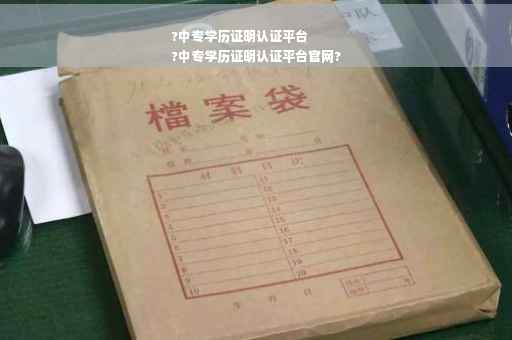 ?中专学历证明认证平台
?中专学历证明认证平台官网?
檔案袋
材料目次
1 11
2 12
3 13
4 14
5 15
6 16
7 17
8 18
9 19
10 20
年 月 日